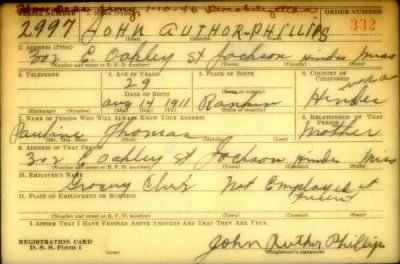 SERIAL NUMBER 1. NAME (Print) ORDER NUMBER
2997 JOHN AUTHOR-PHILLIPS 332
(First) (Middle) (Last)
2. ADDRESS (Print)
302 E. Oakley St Jackson Hinds Miss
(Number and street or R. F. D. number) (Town) (County) (State)
3. TELEPHONE 4. AGE IN YEARS 5. PLACE OF BIRTH 6. COUNTRY OF CITIZENSHIP
29 Hinds
DATE OF BIRTH
Aug 14 1911 Rankin
(Exchange) (Number) (Mo.) (Day) (Yr.) (State or country)
7. NAME OF PERSON WHO WILL ALWAYS KNOW YOUR ADDRESS 8. RELATIONSHIP OF THAT PERSON
Pauline Thomas Mother
(Mr., Mrs., Miss) (First) (Middle) (Last)
9. ADDRESS OF THAT PERSON
302 E Oakley St Jackson Hinds Miss
(Number and street or R. F. D. number) (Town) (County) (State)
10. EMPLOYER'S NAME
Grocery Clerk Not Employed at present
11. PLACE OF EMPLOYMENT OR BUSINESS
(Number and street or R. F. D. number) (Town) (County) (State)
I AFFIRM THAT I HAVE VERIFIED ABOVE ANSWERS AND THAT THEY ARE TRUE.
REGISTRATION CARD
D. S. S. Form 1
John Author Phillips
(Registrant's signature)